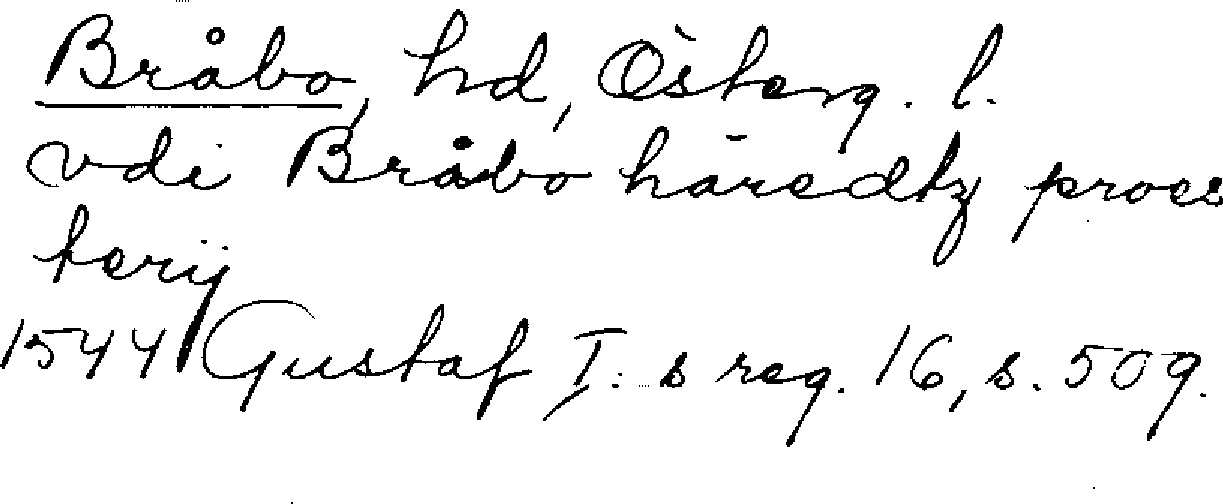 Bråbo, hd, Österg. l.
vdi Bråbo häredtz proes
terij
1544 Gustaf I:s reg. 16, s. 509.